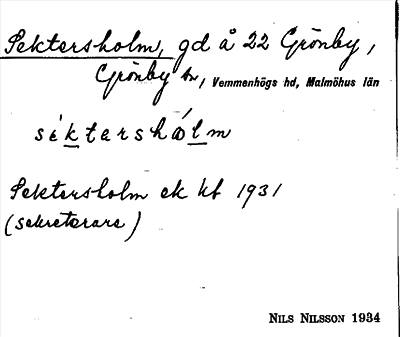 Sektersholm, gd å 22 Grönby,
Grönby sn, Vemmenhögs hd, Malmöhus län
séktershólm
Sektersholm ek kt 1931
(sekreterare)
NILS NILSSON 1934